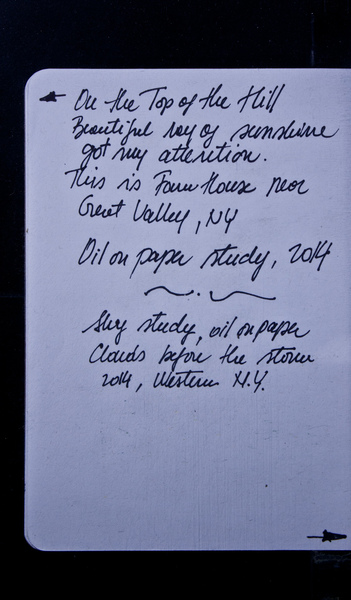 On the Top of the Hill
Beautiful ray of sunshine
got my attention.
This is Farm House near
Great Valley, NY
Oil on paper study, 2014
Sky study, oil on paper
Clouds before the storm
2014, Western N.Y.